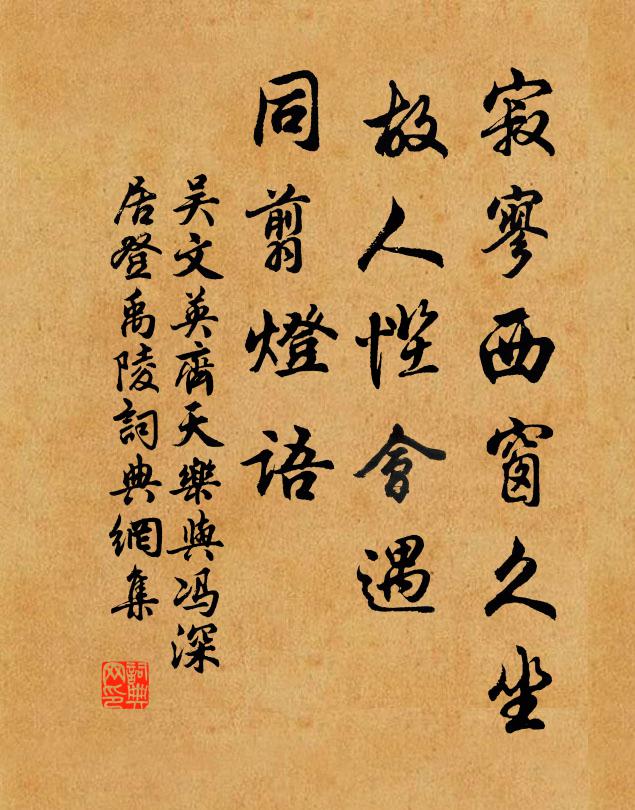 寂寥西窗久坐
故人悭會遇
同翦燈語
吴文英齊天樂與冯深
居登禹陵詞典網集
詞典
网印